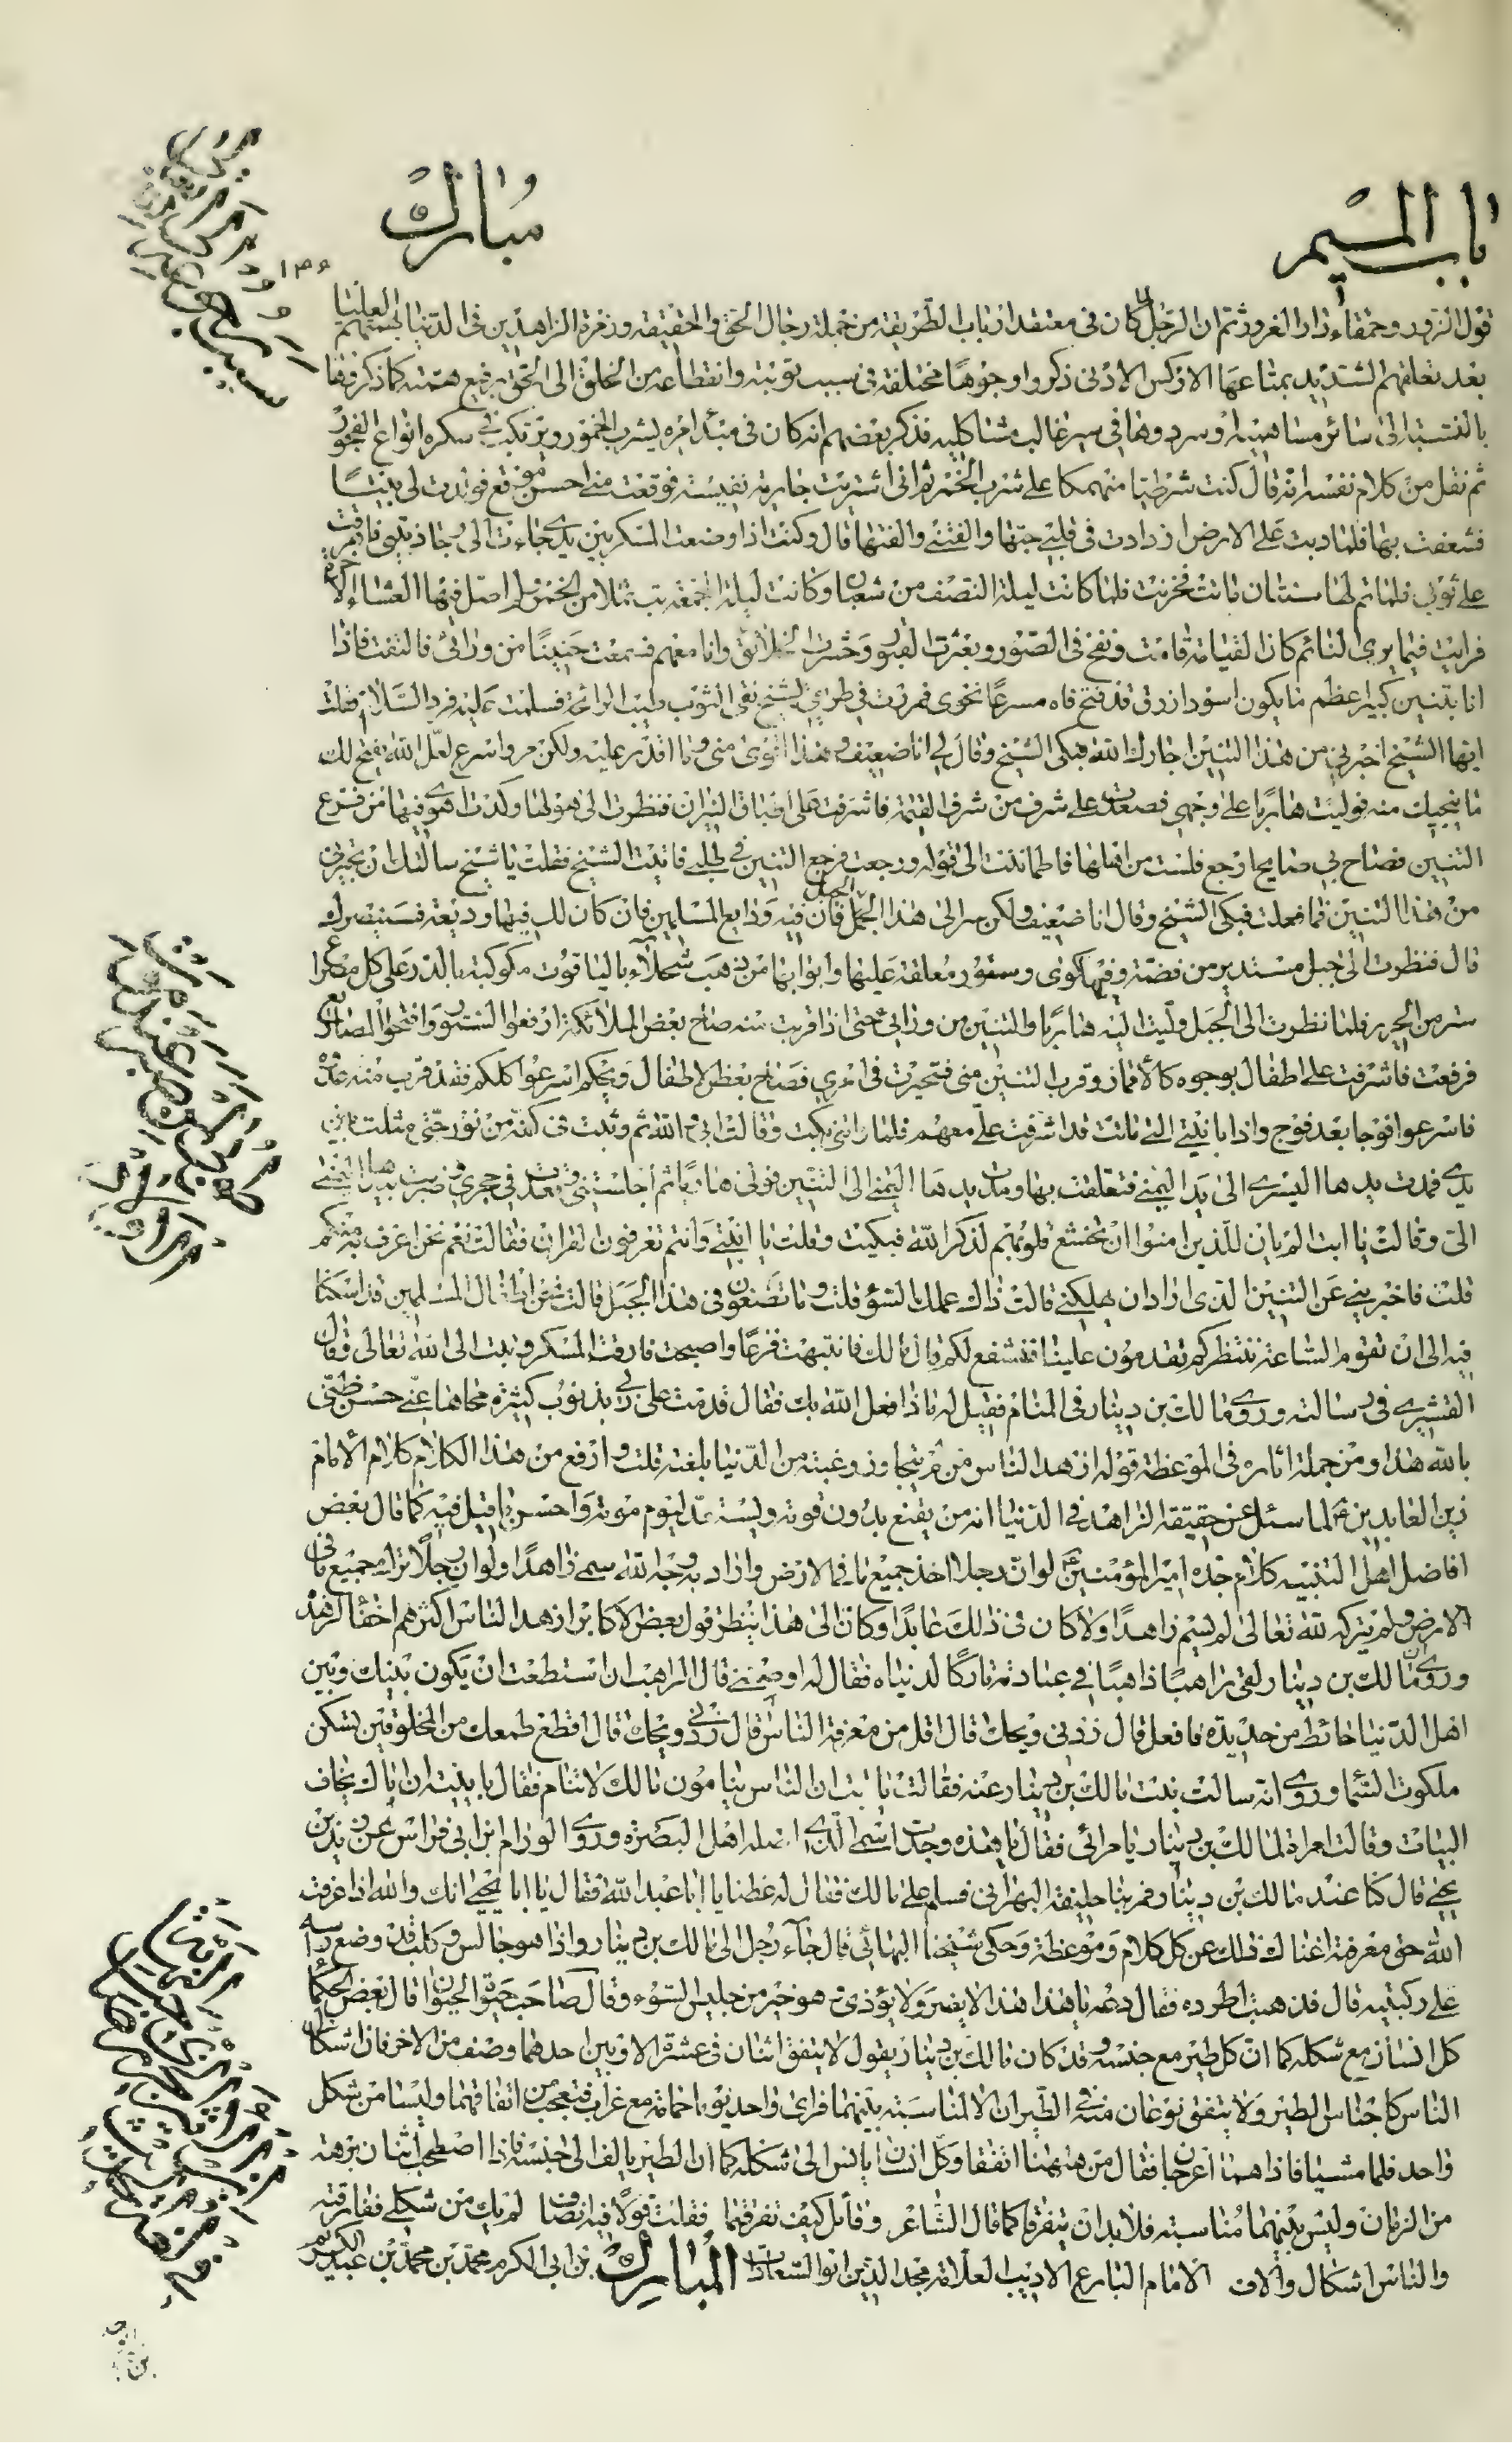 باب الميم
مبارك
قول الزور وحمقاء دار الغرور ثم ان الرجل كان فى معتقد ارباب الطريقة من جملة رجال الحق والحقيقة وزمرة الزاهدين فى الدنيا بهممهم العليا
بعد تعلقهم الشديد بمتاعها الاركس الادنى ذكروا وجوها مختلفة فى سبب توبته وانقطاعه من الخلق الى الحق برفيع همته كما ذكر وفقا
بالنسبة الى سائر مشاهير اهل وسردوها فى سير غالب مشاكليه فذكر بعضهم انه كان فى مبدأ امره يشرب الخمور ويرتكب فى سكره انواع الفجور
ثم نقل من كلام نفسه انه قال كنت شرطيا منهمكا على شرب الخمر ثم انى اشتريت جارية نفيسة فوقعت منى احسن موقع فولدت لى بنتا
فشعفت بها فلما دبت على الارض ازدادت فى قلبى حبها والفتنى والفتها قال وكنت اذا وضعت المسكر بين يدى جاءت الى وجاذبتنى فاهرقت
على ثوبى فلما تم لها سنتان ماتت فحزنت فلما كانت ليلة النصف من شعبان وكانت ليلة الجمعة بت ثملا من الخمر ولم اصل فيها العشاء الاخرة
فرايت فيما يرى النائم كان القيامة قامت ونفخ فى الصور وبعثرت القبور وحشرت الخلائق وانا معهم فسمعت حنينا من ورائى فالتفت فاذا
انا بتنين كبير اعظم ما يكون اسود ازرق قد فتح فاه مسرعا نحوى فمررت فى طريقى بشيخ نقى الثوب طيب الرائحة فسلمت عليه فرد السلام فقلت
ايها الشيخ اجرنى من هذا التنين اجارك الله فبكى الشيخ وقال لى انا ضعيف وهذا اقوى منى وما اقدر عليه ولكن مر واسرع لعل الله يفتح لك
ما ينجيك منه فوليت هاربا على وجهى فصعدت على شرف من شرف القيمة فاشرفت على اطباق النيران فنظرت الى هولها وكدت اهوى فيها من فزع
التنين فصاح بى صايح ارجع فلست من اهلها فاطماننت الى قوله ورجعت فرجع التنين فى طلبى فاتيت الشيخ فقلت يا شيخ سالتك ان تجيرنى
من هذا التنين فما فعلت فبكى الشيخ وقال انا ضعيف ولكن سر الى هذا الجبل فان فيه ودايع المسلمين فان كان لك فيها وديعة فستنصرك
قال فنظرت الى جبل مستدير من فضة وفيها كوى وستور معلقة عليها وابوابها من ذهب محلاة باليا قوت مكوكبة بالدر على كل مصراع
ستر من الحرير فلما نظرت الى الجبل وليت اليه هاربا والتنين من ورائى حتى اذا قربت منه صاح بعض الملائكة ارفعوا الستور وافتحوا المصاريع
فرفعت فاشرفت على اطفال بوجوه كالاقمار وقرب التنين منى فتحيرت فى امرى فصاح بعض الاطفال ويحكم اسرعوا كلكم فقد قرب منه عدوه
فاسرعوا فوجا بعد فوج واذا بابنتى التى ماتت قد اشرفت على معهم فلما راتنى بكت وقالت ابى والله ثم وثبت فى كفة من نور حتى مثلت بين
يدى فمدت يدها اليسرى الى يدى اليمنى فتعلقت بها ومدت يدها اليمنى الى التنين فولى هاربا ثم اجلستنى وقعدت فى حجرى وضربت بيدها اليمنى
الى وقالت يا ابت الم يان للذين امنوا ان تخشع قلوبهم لذكر الله فبكيت وقلت يا ابنتى وانتم تعرفون القران فقالت نعم نحن اعرف به منكم
قلت فاخبرينى عن التنين الذى اراد ان يهلكنى قالت ذاك عملك السوء قلت وما تصنعون فى هذا الجبل قالت نحن اطفال المسلمين قد اسكنا
فيه الى ان تقوم الساعة ننتظركم تقدمون علينا فنشفع لكم قال مالك فانتبهت فزعا واصبحت فارقت المسكر وتبت الى الله تعالى وقال
القشيرى فى رسالته وروى مالك بن دينار فى المنام فقيل له ماذا فعل الله بك فقال قدمت على ربى بذنوب كثيرة محاها عنى حسن ظنى
بالله هذا ومن جملة اثاره فى الموعظة قوله ازهد الناس من لم يتجاوز رغبته من الدنيا بلغته قلت وارفع من هذا الكلام كلام الامام
زين العابدين ع لما سئل عن حقيقة الزاهد فى الدنيا انه من يقنع بدون قوته ويستعد ليوم موته واحسن ما قيل فيه كما قال بعض
افاضل اهل التنبيه كلام جده امير المؤمنين ع لو ان رجلا اخذ جميع ما فى الارض واراد به وجه الله سمى زاهدا ولو ان رجلا ترك جميع ما فى
الارض ولم يتركه لله تعالى لم يسم زاهدا ولا كان فى ذلك عابدا وكان الى هذا ينظر قول بعض الاكابر ازهد الناس اكثرهم اخفاء لزهده
وروى ان مالك بن دينار لقى راهبا ذاهبا فى عبادته تاركا لدنياه فقال له اوصنى قال الراهب ان استطعت ان يكون بينك وبين
اهل الدنيا حائط من حديد ة فافعل قال زدنى ويحك قال اقل من معرفة الناس قال زدنى ويحك قال اقطع طمعك من المخلوقين تسكن
ملكوت السما وروى انه سالت بنت مالك بن دينار عنه فقالت يا ابت ان الناس ينامون مالك لا تنام فقال يا بنية ان اباك يخاف
البيات وقالت امراة لمالك بن دينار يا مرائى فقال يا هذه وجدت اسمى الذى اضله اهل البصرة وروى الورام بن ابى فراس عن زيد بن
يحيى قال كنا عند مالك بن دينار فمر بنا خليفة البهرانى فسلم على مالك فقال له عظنا يا ابا عبد الله فقال يا ابا يحيى انك والله اذا عرفت
الله حق معرفة اغناك ذلك عن كل كلام وموعظة وحكى شيخنا البهائى قال جاء رجل الى مالك بن دينار واذا هو جالس وكلب قد وضع راسه
على ركبتيه قال فذهبت اطرده فقال دعه يا هذا هذا لا يضر ولا يؤذى وهو خير من جليس السوء وقال صاحب حيوة الحيوان قال بعض الحكما
كل انسان مع شكله كما ان كل طير مع جنسه وقد كان مالك بن دينار يقول لا يتفق اثنان فى عشرة الا وبين احدهما وصف من الاخر فان اشكال
الناس كاجناس الطير ولا يتفق نوعان منه فى الطيران الا لمناسبة بينهما فراى واحد يوما حمامة مع غراب فتعجب من اتفاقهما وليسا من شكل
واحد فلما مشيا فاذا هما اعرجان فقال من ههنا اتفقا وكل انسان يانس الى شكله كما ان الطير يالف الى جنسه فاذا اصطحب اثنان برهة
من الزمان وليس بينهما مناسبة فلا بد ان يتفرقا كما قال الشاعر وقائل كيف تفرقتما فقلت قولا فيه انصاف لم يك من شكلى ففارقته
والناس اشكال والاف الامام البارع الاديب العلامة مجد الدين ابو السعادات المبارك بن ابى الكرم محمد بن محمد بن عبد الكريم